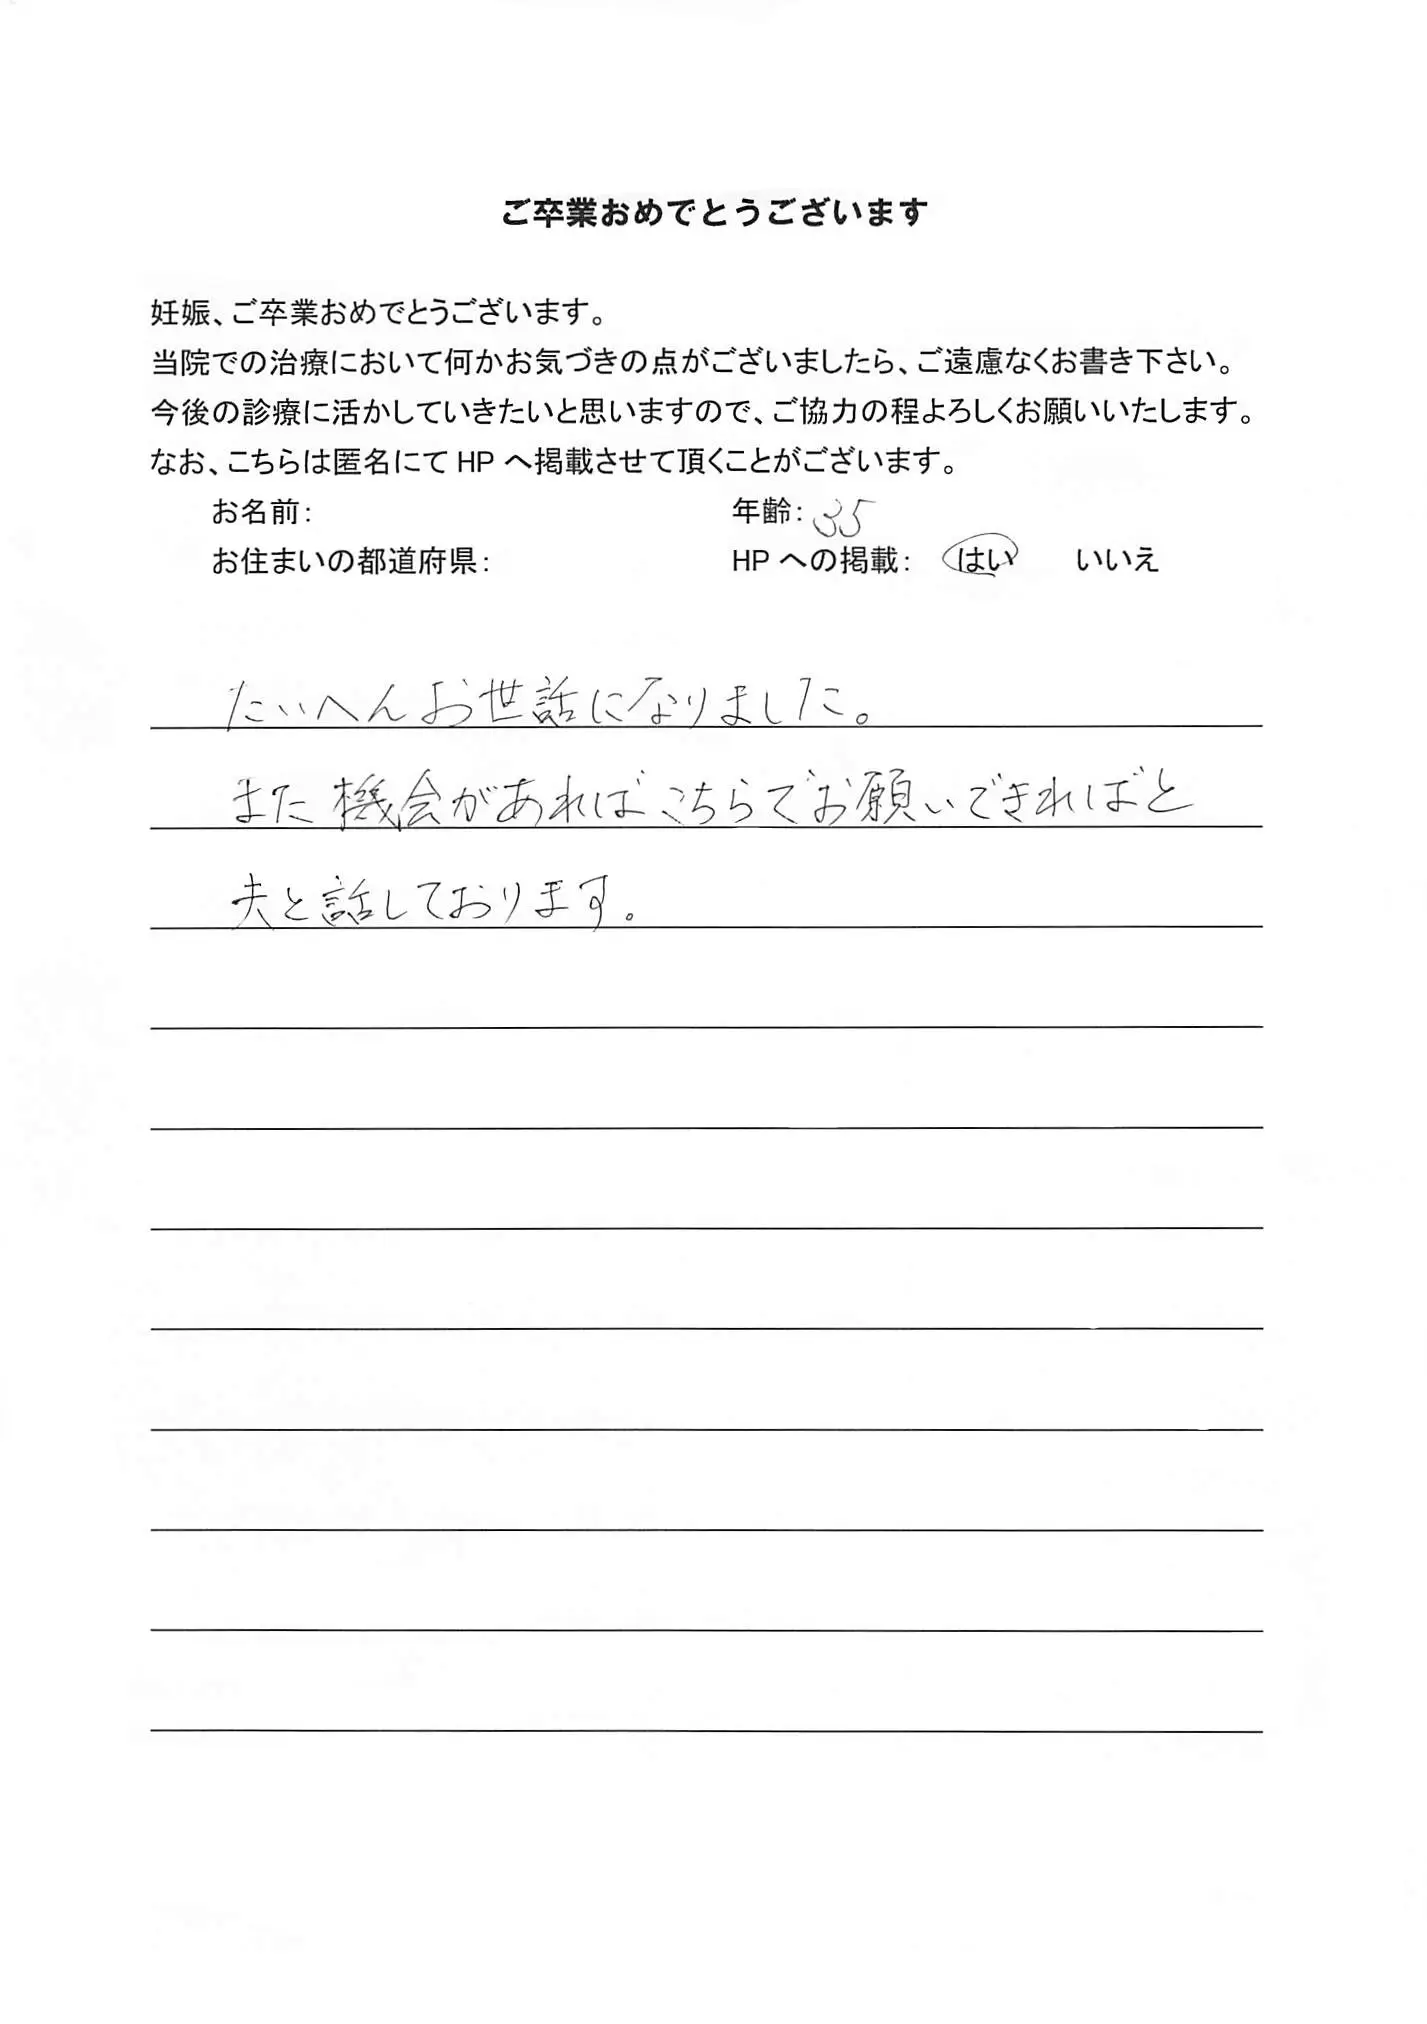 ご卒業おめでとうございます
妊娠、ご卒業おめでとうございます。
当院での治療において何かお気づきの点がございましたら、ご遠慮なくお書き下さい。
今後の診療に活かしていきたいと思いますので、ご協力の程よろしくお願いいたします。
なお、こちらは匿名にて HP へ掲載させて頂くことがございます。
お名前： 年齢：35
お住まいの都道府県： HP への掲載： はい いいえ
たいへんお世話になりました。
また機会があればこちらでお願いできればと
夫と話しております。